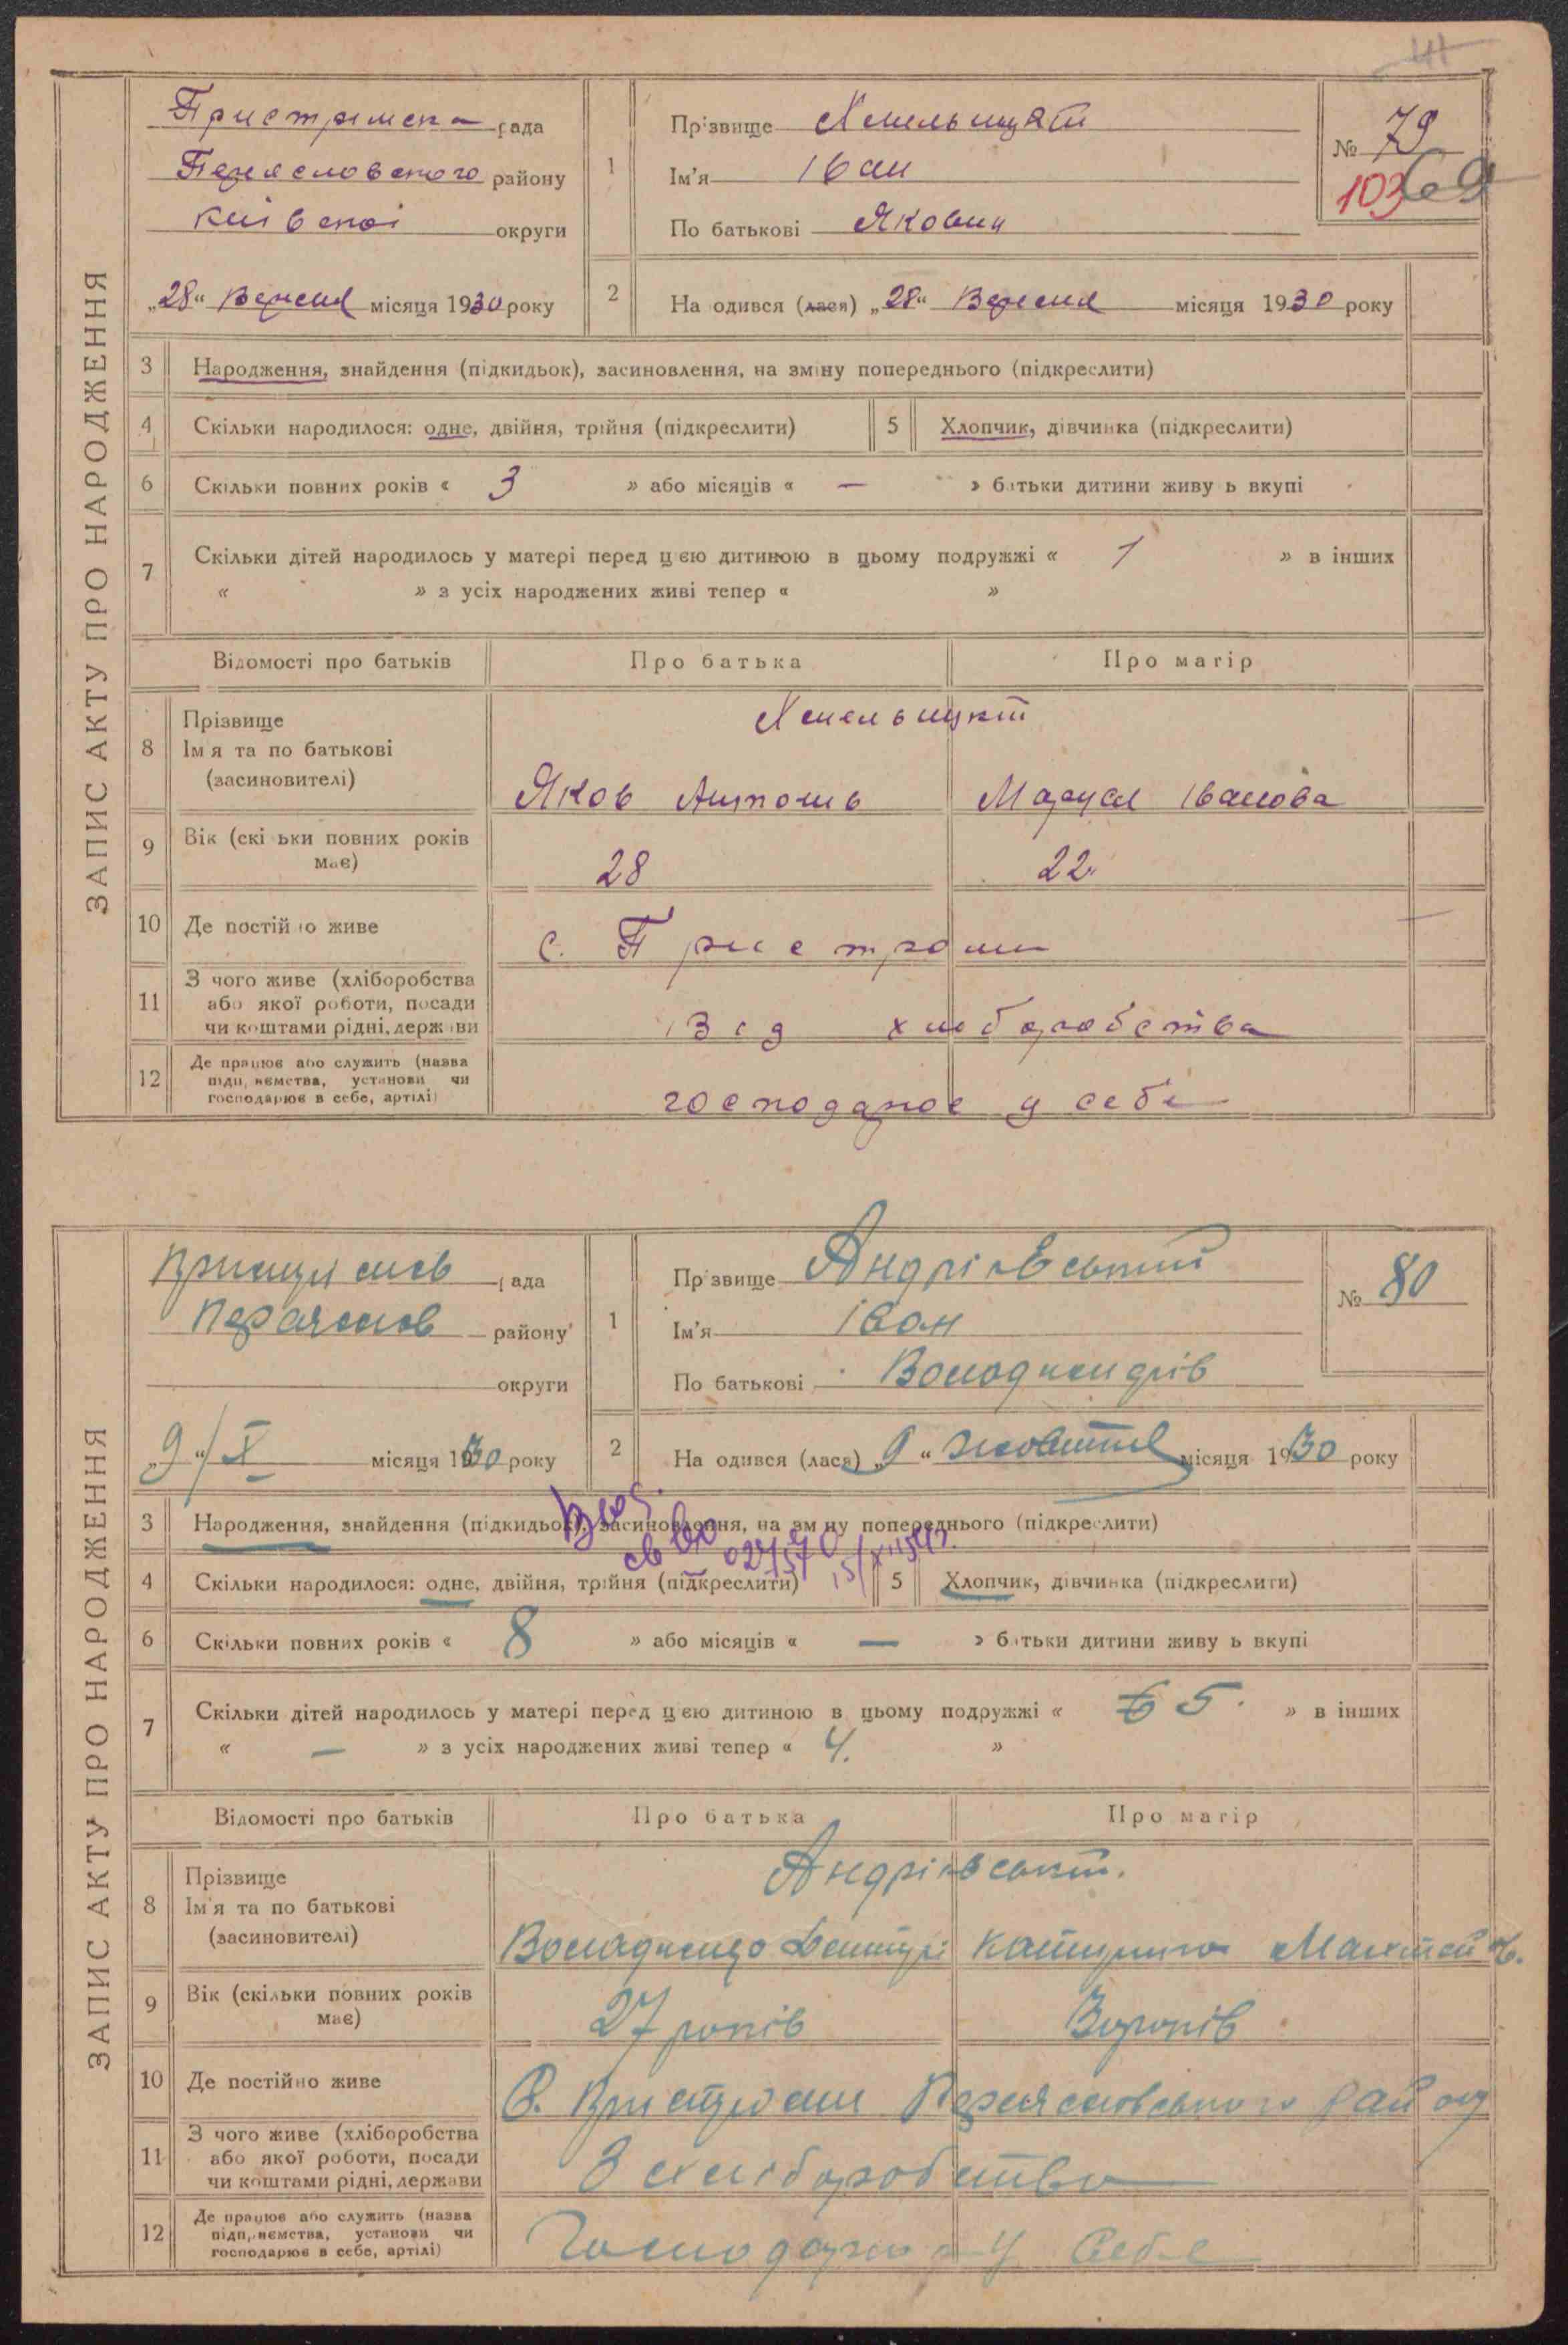 ЗАПИС АКТУ ПРО НАРОДЖЕННЯ
Пристрімска рада
Переяславського району
Київської округи
„28“ Вересня місяця 1930 року
1 Прізвище Хмельницький
Ім’я Іван
По батькові Якович
№ 79
103 69
2 На одився (лася) „28“ Вересня місяця 1930 року
3 Народження, знайдення (підкидьок), засиновлення, на зміну попереднього (підкреслити)
4 Скільки народилося: одне, двійня, трійня (підкреслити) 5 Хлопчик, дівчинка (підкреслити)
6 Скільки повних років « 3 » або місяців « — » батьки дитини живу ь вкупі
7 Скільки дітей народилось у матері перед цією дитиною в цьому подружжі « 1 » в інших
« » з усіх народжених живі тепер « »
Відомості про батьків Про батька Про матір
8 Прізвище
Ім я та по батькові
(засиновителі)
Яков Антонів Маруся Іванова
9 Вік (скі ьки повних років має) 28 22
10 Де постійно живе с. Пристроми
11 З чого живе (хліборобства
або якої роботи, посади
чи коштами рідні, держави
Від хліборобства
12 Де працює або служить (назва
підприємства, установи чи
господарює в себе, артілі)
господарює у себе
ЗАПИС АКТУ ПРО НАРОДЖЕННЯ
рада
Переяслов району
округи
„9“/X місяця 1930 року
1 Прізвище Андріївський
Ім’я Іван
По батькові
№ 80
2 На одився (лася) „9“ жовтня місяця 1930 року
3 Народження, знайдення (підкидьок), засиновлення, на зміну попереднього (підкреслити)
4 Скільки народилося: одне, двійня, трійня (підкреслити) 5 Хлопчик, дівчинка (підкреслити)
6 Скільки повних років « 8 » або місяців « — » батьки дитини живу ь вкупі
7 Скільки дітей народилось у матері перед цією дитиною в цьому подружжі « 6 5 » в інших
« — » з усіх народжених живі тепер « 4. »
Відомості про батьків Про батька Про матір
8 Прізвище
Ім’я та по батькові
(засиновителі)
Катерина
9 Вік (скільки повних років має) 27 років 30 років
10 Де постійно живе С. Пристроми Переясловського району
11 З чого живе (хліборобства
або якої роботи, посади
чи коштами рідні, держави
З хліборобства
12 Де працює або служить (назва
підприємства, установи чи
господарює в себе, артілі)
Господарює у себе